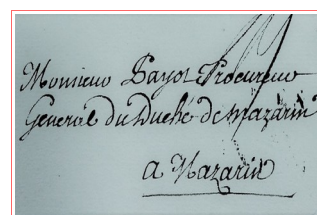 Monsieur Payot Procureur
General du Duché de mazarin
a Mazarin